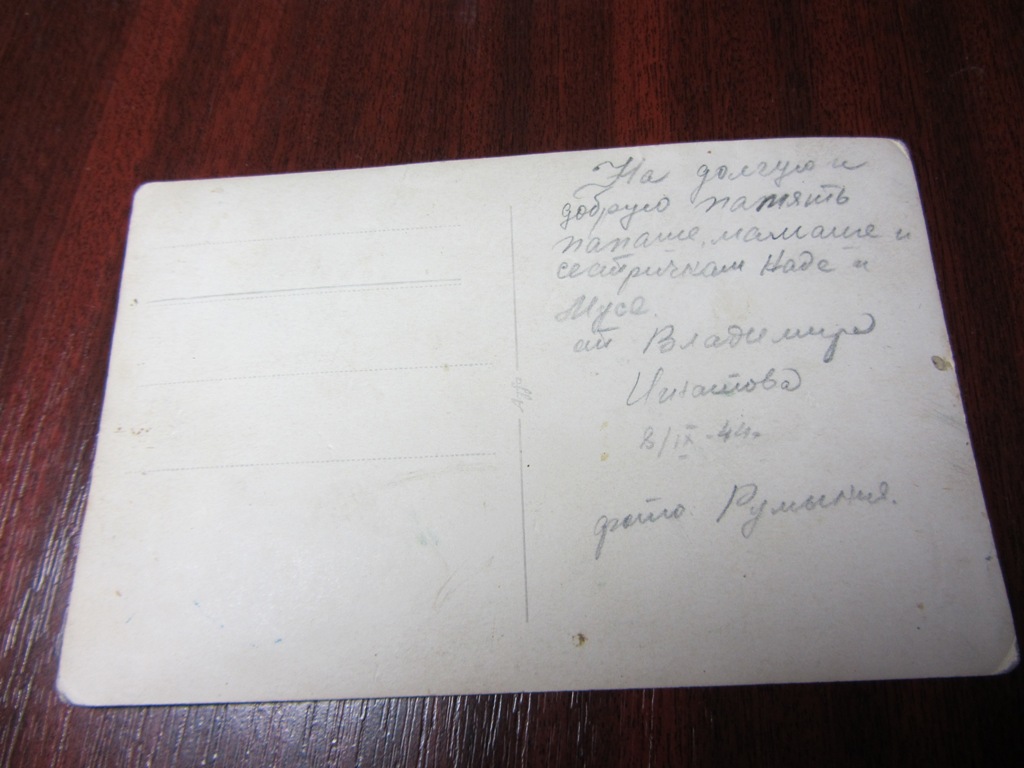 На долгую и
добрую память
папаше, мамаше и
сестричкам Наде и
Мусе.
от Владимира
8/IX-44г.
фото Румыния.